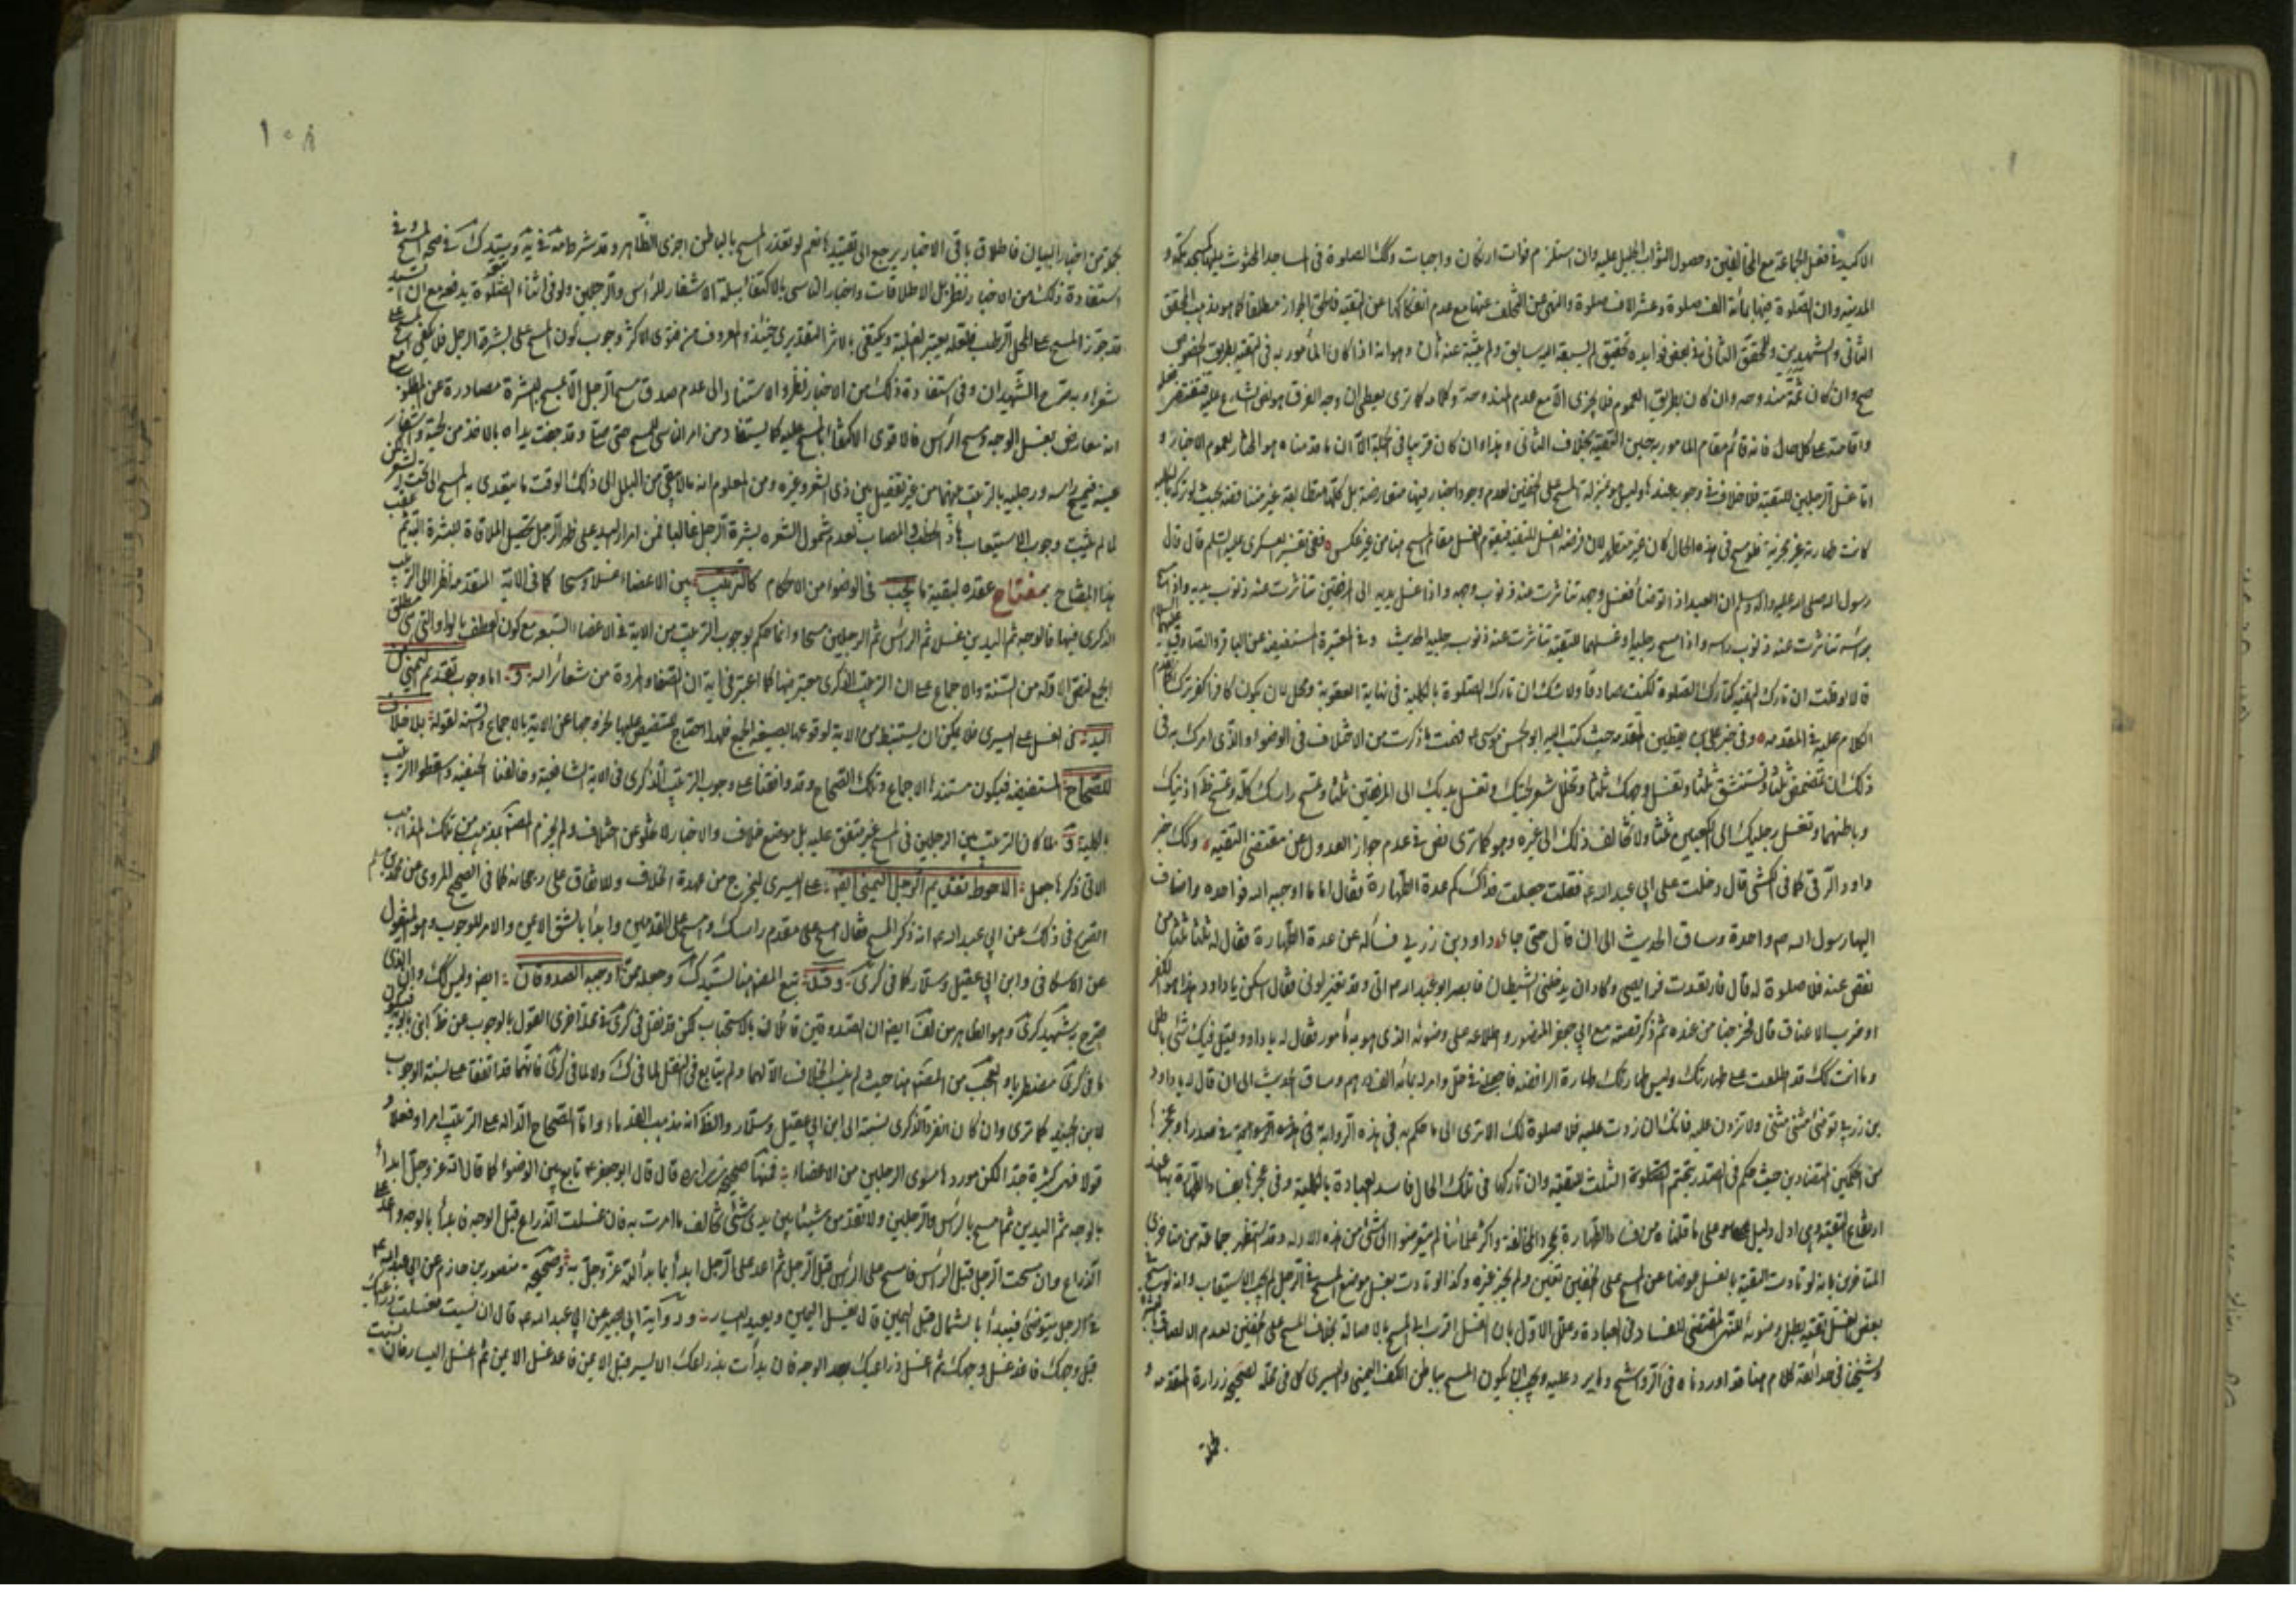 الاكيد في فضل الجماعة مع المخالفين وحصول الثواب الجليل عليه وان استلزم فوات اركان وواجبات وكك الصلوة في المساجد المحثوث عليها كمسجد مكة و
المدينة وان الصلوة فيها بمائة الف صلوة وعشرة الاف صلوة والنهي عن التخلف عنها مع عدم انفكاكها عن التقية فالحق الجواز مطلقا كما هو مذهب المحقق
الثاني والشهيدين وللمحقق الثاني في بعض فوايده تحقيق لم يسبقه اليه سابق ولم يثبته عنه ثان وهو انه اذا كان المأمور به في التقية بطريق الخصوص
صح وان كان ثمة مندوحة وان كان بطريق العموم فلا يجزي الا مع عدم المندوحة وكلامه كما ترى يعطي ان وجه الفرق هو نص الشارع عليه
واقامته على كل حال فانه قائم مقام المأمور به حين التقية بخلاف الثاني وهذا وان كان قريبا في الجملة الا ان ما قدمناه هو المختار لعموم الاخبار و
اما غسل الرجلين للتقية فلا خلاف في وجوبه عندنا وليس هو بمنزلة المسح على الخفين لعدم وجود اخبار فيها متعارضة بل كلها متطابقة غير متناقضة بحيث لو تركه
كانت طهارته غير مجزية فلو مسح في هذه الحال كان غير متطهر لان فرضه الغسل للتقية فيقوم الغسل مقام المسح هنا من غير عكس ففي تفسير العسكري عليه السلم قال قال
رسول الله صلى الله عليه واله وسلم ان العبد اذا توضأ فغسل وجهه تناثرت عنه ذنوب وجهه واذا غسل يديه الى المرفقين تناثرت عنه ذنوب يديه واذا مسح
برأسه تناثرت عنه ذنوب رأسه واذا مسح رجليه او غسلهما للتقية تناثرت عنه ذنوب رجليه الحديث وفي المعتبرة المستفيضة عن الباقر والصادق
قالا لو قلت ان تارك التقية كتارك الصلوة لكنت صادقا ولا شك ان تارك الصلوة بالكلية في نهاية العقوبة ومحل لان يكون كافرا كفر ترك
الكلام عليه في المقدمة وفي خبر علي بن يقطين المتقدمة حيث كتب اليه ابو الحسن موسى ع فهمت ما ذكرت من الاختلاف في الوضوء والذي امرك به في
ذلك ان تتمضمض ثلثا وتستنشق ثلثا وتغسل وجهك ثلثا وتخلل شعر لحيتك وتغسل يديك الى المرفقين ثلثا وتمسح راسك كله وتمسح ظاهر اذنيك
وباطنهما وتغسل رجليك الى الكعبين ثلثا ولا تخالف ذلك الى غيره وهو كما ترى نص في عدم جواز العدول عن مقتضى التقية وكك خبر
داود الرقي كما في الكشي قال دخلت على ابي عبد الله ع فقلت جعلت فداك كم عدة الطهارة فقال اما ما اوجبه الله فواحدة واضاف
اليها رسول الله ص واحدة وساق الحديث الى ان قال حتى جاء داود بن زربي فسأله عن عدة الطهارة فقال له ثلثا ثلثا من
نقص عنه فلا صلوة له قال فارتعدت فرايصي وكاد ان يدخلني الشيطان فابصر ابو عبد الله ع الي وقد تغير لوني فقال اسكن يا داود هذا هو الكفر
او ضرب الاعناق قال فخرجنا من عنده ثم ذكر قصته مع ابي جعفر المنصور واطلاعه على وضوئه الذي هو به مأمور فقال له يا داود قيل فيك شئ باطل
وما انت كك قد اطلعت على طهارتك وليس طهارتك طهارة الرافضة فاجعلني في حل وامر له بمائة الف درهم وساق الحديث الى ان قال له يا داود
بن زربي توضئ مثنى مثنى ولا تزدن عليه فانك ان زدت عليه فلا صلوة لك الا ترى الى ما حكم به في هذه الرواية في صدرها وعجزها
من الحكمين المتضادين حيث حكم في الصدر بتحتم الثلث للتقية وان تاركها في تلك الحال فاسد العبادة بالكلية وفي عجزها بفساد الطهارة بها عند
ارتفاع التقية وهي ادل دليل على ما قلناه من فساد الطهارة بمجرد المخالفة واكثر علمائنا لم يتعرضوا الى شئ من هذه الادلة وقد استظهر جماعة من متاخري
المتاخرين بانه لو تادت التقية بالغسل عوضا عن المسح على الخفين تعين ولم يجز غيره وكذا لو تادت بغسل موضع المسح في الرجل لم يجب الاستيعاب وانه لو مسح
بعض الغسل تقية بطل وضوئه للنهي المقتضي للفساد في العبادة وعلل الاول بان الغسل اقرب الى المسح بالاصالة بخلاف المسح على الخفين لعدم الالصاق
وشيخنا في حدائقه كلام هنا قد اوردناه في الشرح وما يرد عليه ويجب ان يكون المسح بباطن الكف اليمنى واليسرى كل في محله لصحيح زرارة المتقدمة و
١٠٨
نحوه من اخبار البيان فاطلاق باقي الاخبار يرجع الى تقييدها نعم لو تعذر المسح بالباطن اجزى الظاهر وقد شرط
استفادة ذلك من الاخبار نظر بل الاطلاقات واخبار الناسي بالاكتفاء ببلة الاشفار للرأس والرجلين ولو في اثناء الصلوة يدفعه مع ان
قد جوز المسح على المحل الرطب فلعله يعتبر الغلبة ويكتفي بالاثر التقديري حينئذ والمعروف من فتوى الاكثر وجوب كون المسح على بشرة الرجل فلا يكفي المسح على
شعر وبه صرح الشهيدان وفي استفادة ذلك من الاخبار نظر والاستناد الى عدم صدق مسح الرجل الا بمسح البشرة مصادرة عن المطلوب مع
انه معارض بغسل الوجه ومسح الرأس فالاقوى الاكتفاء بالمسح عليه كما يستفاد من امر الناسي للمسح حتى صلى وقد جفت يداه بالاخذ من لحيته واشفار
عينيه فيمسح رأسه ورجليه بالترتيب بينهما من غير تفصيل بين ذي الشعر وغيره ومن المعلوم انه لا يبقى من البلل الى ذلك الوقت ما يتعدى به المسح الى تحت الشعر
لما لم يثبت وجوب الاستيعاب هان الخطب في المصاب لعدم شمول الشعر بشرة الرجل غالبا فمن امرار اليد على ظهر الرجل تحصل الملاقاة للبشرة البتة ثم عقب
هذا المفتاح بمفتاح عقده لبقية ما يجب في الوضوء من الاحكام كالترتيب بين الاعضاء غسلا ومسحا كما في الاية المتقدمة نظرا الى الترتيب
الذكري فيها فالوجه ثم اليدين غسلا ثم الرأس ثم الرجلين مسحا وانما حكم بوجوب الترتيب من الاية في الاعضاء السبعة مع كون العطف بالواو التي هي لمطلق
الجمع لنص الادلة من السنة والاجماع على ان الترتيب الذكري معتبر فيها كما اعتبر في اية ان الصفا والمروة من شعائر الله و اما وجوب تقديم اليمنى من
اليدين في الغسل على اليسرى فلا يمكن ان يستنبط من الاية لوقوعها بصيغة الجمع فلهذا احتاج للتنصيص عليها لخروجها عن الاية بالاجماع والسنة لقوله بلا خلاف
للصحاح المستفيضة فيكون مستندها الاجماع وتلك الصحاح وقد وافقنا على وجوب الترتيب الذكري في الاية الشافعية وخالفنا الحنفية واسقطوا الترتيب
بالكلية و لما كان الترتيب بين الرجلين في المسح غير متفق عليه بل موضع خلاف والاخبار لا تخلو عن اختلاف ولم يجزم المص بمذهب من تلك المذاهب
الاتي ذكرها جعل الاحوط تقديم الرجل اليمنى ايضا على اليسرى ليخرج من عهدة الخلاف وللاتفاق على رجحانه كما في الصحيح المروي عن محمد بن مسلم
الصريح في ذلك عن ابي عبد الله ع انه ذكر المسح فقال امسح على مقدم راسك وامسح على القدمين وابدأ بالشق الايمن والامر للوجوب وهو المنقول
عن الاسكافي وابن ابي عقيل وسلار كما في كرى وقد تبع المص هنا لسيد ك وجعله مما اوجبه الصدوقان ايضا وليس كك وان الذي
صرح به شهيد كرى وهو الظاهر من لف ايضا ان الصدوقين قائلان بالاستحباب لكن قد نقل في كرى في محل اخرى القول بالوجوب عن ظ ابني بابويه فيكون
ما في كرى مضطربا والعجب من المص هنا حيث لم ينسب الخلاف الا لهما ولم يتابع في النقل لما في ك ولا لما في كرى فانهما قد اتفقا على نسبة الوجوب
لابن الجنيد كما ترى وان كان انفرد الذكرى بنسبته الى ابن ابي عقيل وسلار والظ انه مذهب القدماء واما الصحاح الدالة على الترتيب امرا وفعلا و
قولا فهي كثيرة جدا لكن موردها سوى الرجلين من الاعضاء فمنها صحيح زرارة قال قال ابو جعفر ع تابع بين الوضوء كما قال الله عز وجل ابدأ
بالوجه ثم اليدين ثم امسح بالرأس والرجلين ولا تقدمن شيئا بين يدي شئ تخالف ما امرت به فان غسلت الذراع قبل الوجه فابدأ بالوجه واعد على
الذراع وان مسحت الرجل قبل الرأس فامسح على الرأس قبل الرجل ثم اعد على الرجل ابدأ بما بدأ الله عز وجل به وصحيحة منصور بن حازم عن ابي عبد الله ع
في الرجل يتوضئ فيبدأ بالشمال قبل اليمين قال يغسل اليمين ويعيد اليسار ورواية ابي بصير عن ابي عبد الله ع قال ان نسيت فغسلت ذراعيك
قبل وجهك فاعد غسل وجهك ثم اغسل ذراعيك بعد الوجه فان بدأت بذراعك الايسر قبل الايمن فاعد غسل الايمن ثم اغسل اليسار وان نسيت